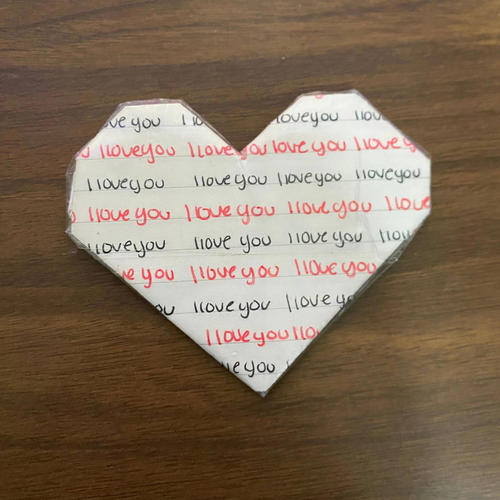 ve you I lo loveyou Ilov
u Iloveyou Ilove you love you Ilove y
Iloveyou Iloveyou Iloveyou Iloveyou
Ilove you Ilove you Ilove you Ilove
Iloveyou Ilove you Ilove you Ilov
ve you Ilove you Ilove you
ou Ilove you Ilove yo
Ilove you Ilo
ve you I